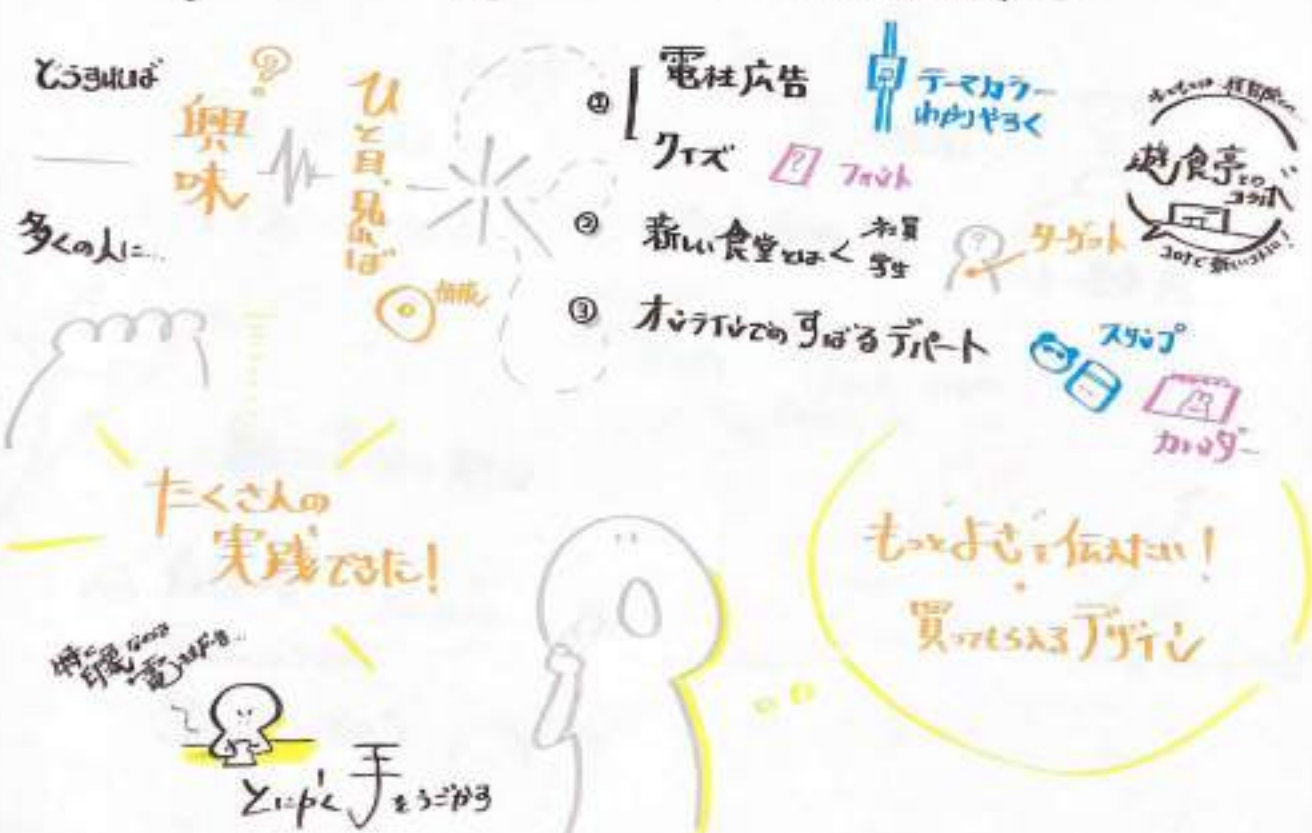 どうすれば
興味
?
多くの人に…
ひと目、見れば
価値
① 電社広告
クイズ
テーマカラー
わかりやすく
? フォント
② 新しい食堂とはく 社員
学生
?
ターゲット
遊食亭との
コラボ
③ オンラインでのすばるデパート
スタンプ
カレンダー
たくさんの
実践できた!
もっとよさを伝えたい!
買ってもらえるデザイン
とにかく手をうごかす